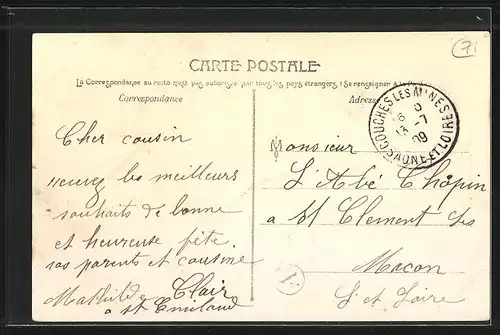 71
CARTE POSTALE
La Correspondance au recto n'est pas autorisée par tous les pays étrangers (Se renseigner à la
Correspondance
Adresse
COUCHES-LES-MINES
SAONE-ET-LOIRE
16
13 -7
09
Cher cousin
recevez les meilleurs
souhaits de bonne
et heureuse fête.
vos parents et cousine
Mathilde Clair
a st Emiland
Monsieur
L'Abé Chopin
a St Clement les
Macon
S et Loire